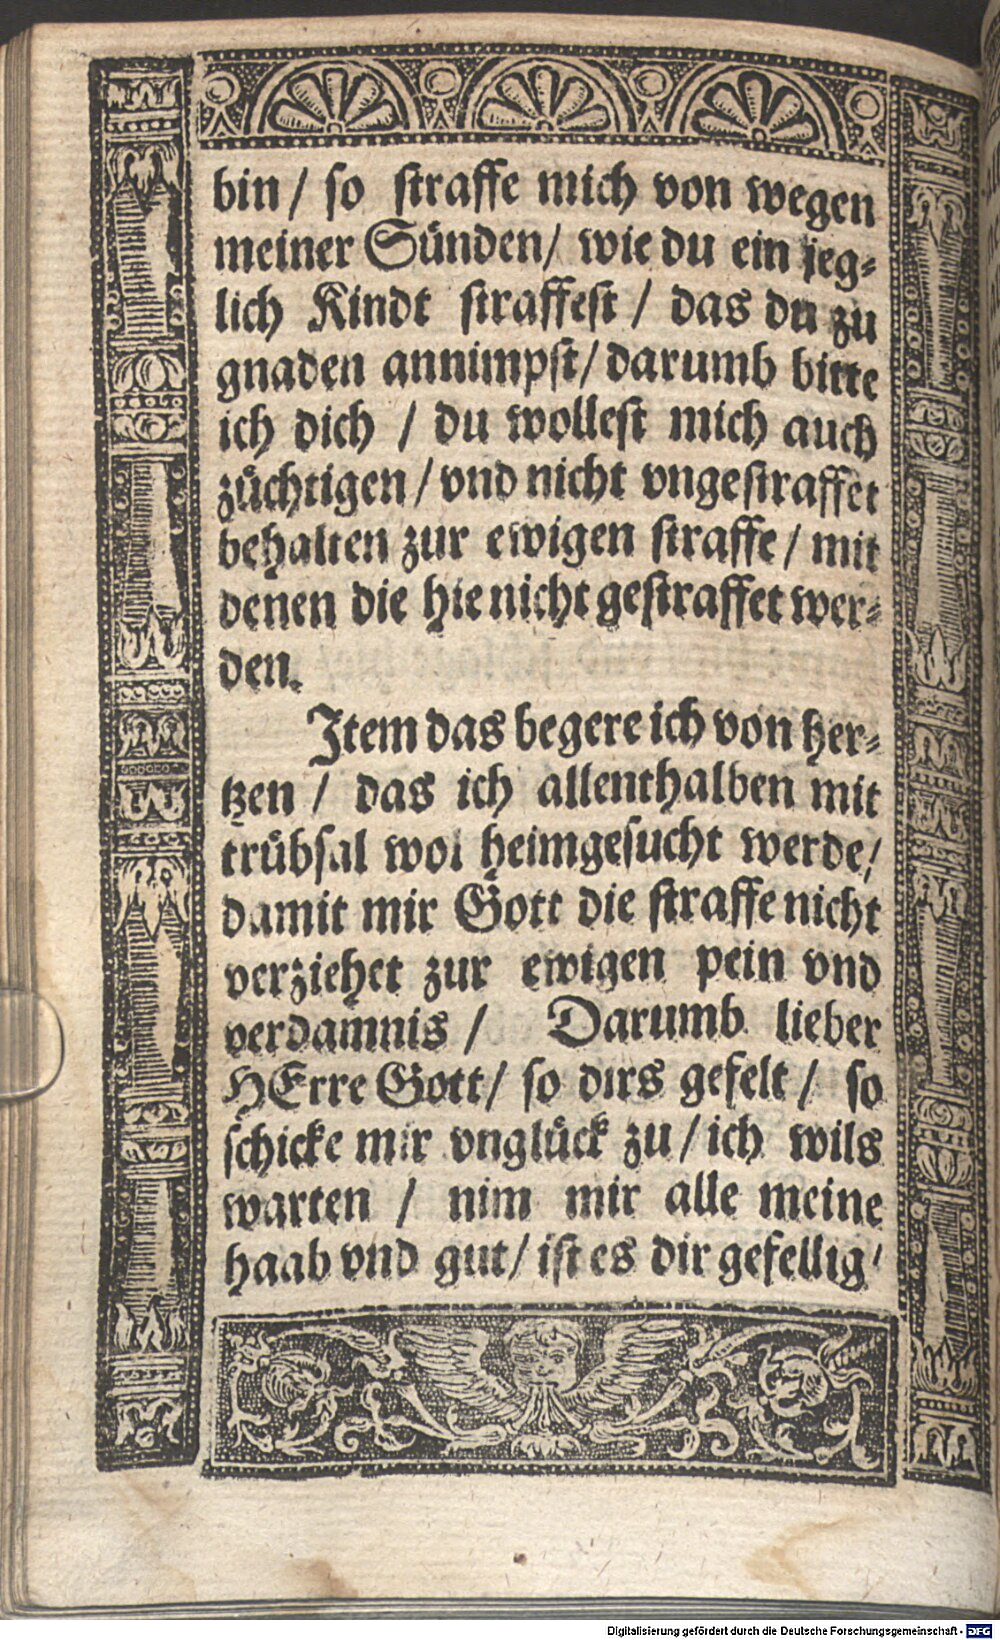 bin / so straffe mich von wegen
meiner Sünden / wie du ein jeg⸗
lich Kindt straffest / das du zu
gnaden annimpst / darumb bitte
ich dich / du wollest mich auch
züchtigen / vnd nicht vngestraffet
behalten zur ewigen straffe / mit
denen die hie nicht gestraffet wer⸗
den.
Item das begere ich von her⸗
tzen / das ich allenthalben mit
trübsal wol heimgesucht werde /
damit mir Gott die straffe nicht
verziehet zur ewigen pein vnd
verdamnis / Darumb lieber
HErre Gott / so dirs gefelt / so
schicke mir vnglück zu / ich wils
warten / nim mir alle meine
haab vnd gut / ist es dir gefellig /
Digitalisierung gefördert durch die Deutsche Forschungsgemeinschaft - DFG